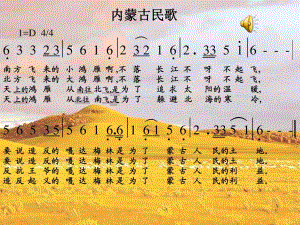 内蒙古民歌
1=D 4/4
6 3 3 2 3 5 6 1 6 2 . 3 3 5 1 6
南方 飞 来的 小 鸿 雁 啊 不 落 长 江 不 呀 不 起 飞,
北方 飞 来的 大 鸿 雁 啊 不 落 长 江 不 呀 不 起 飞,
天上的 鸿 雁 从 南往 北 飞 是 为 了 追 求 太 阳 的 温 暖,
天上的 鸿 雁 从 北往 南 飞 是 为 了 躲 避 北 海 的 寒 冷,
要说 造 反 的 嘎 达 梅林 是 为 了 蒙 古 人 民 的 土 地,
要说 造 反 的 嘎 达 梅林 是 为 了 蒙 古 人 民 的 土 地.
反抗 王 爷 的 嘎 达 梅林 是 为 了 蒙 古 人 民 的 利 益,
造反 起 义 的 嘎 达 梅林 是 为 了 蒙 古 人 民 的 利 益.